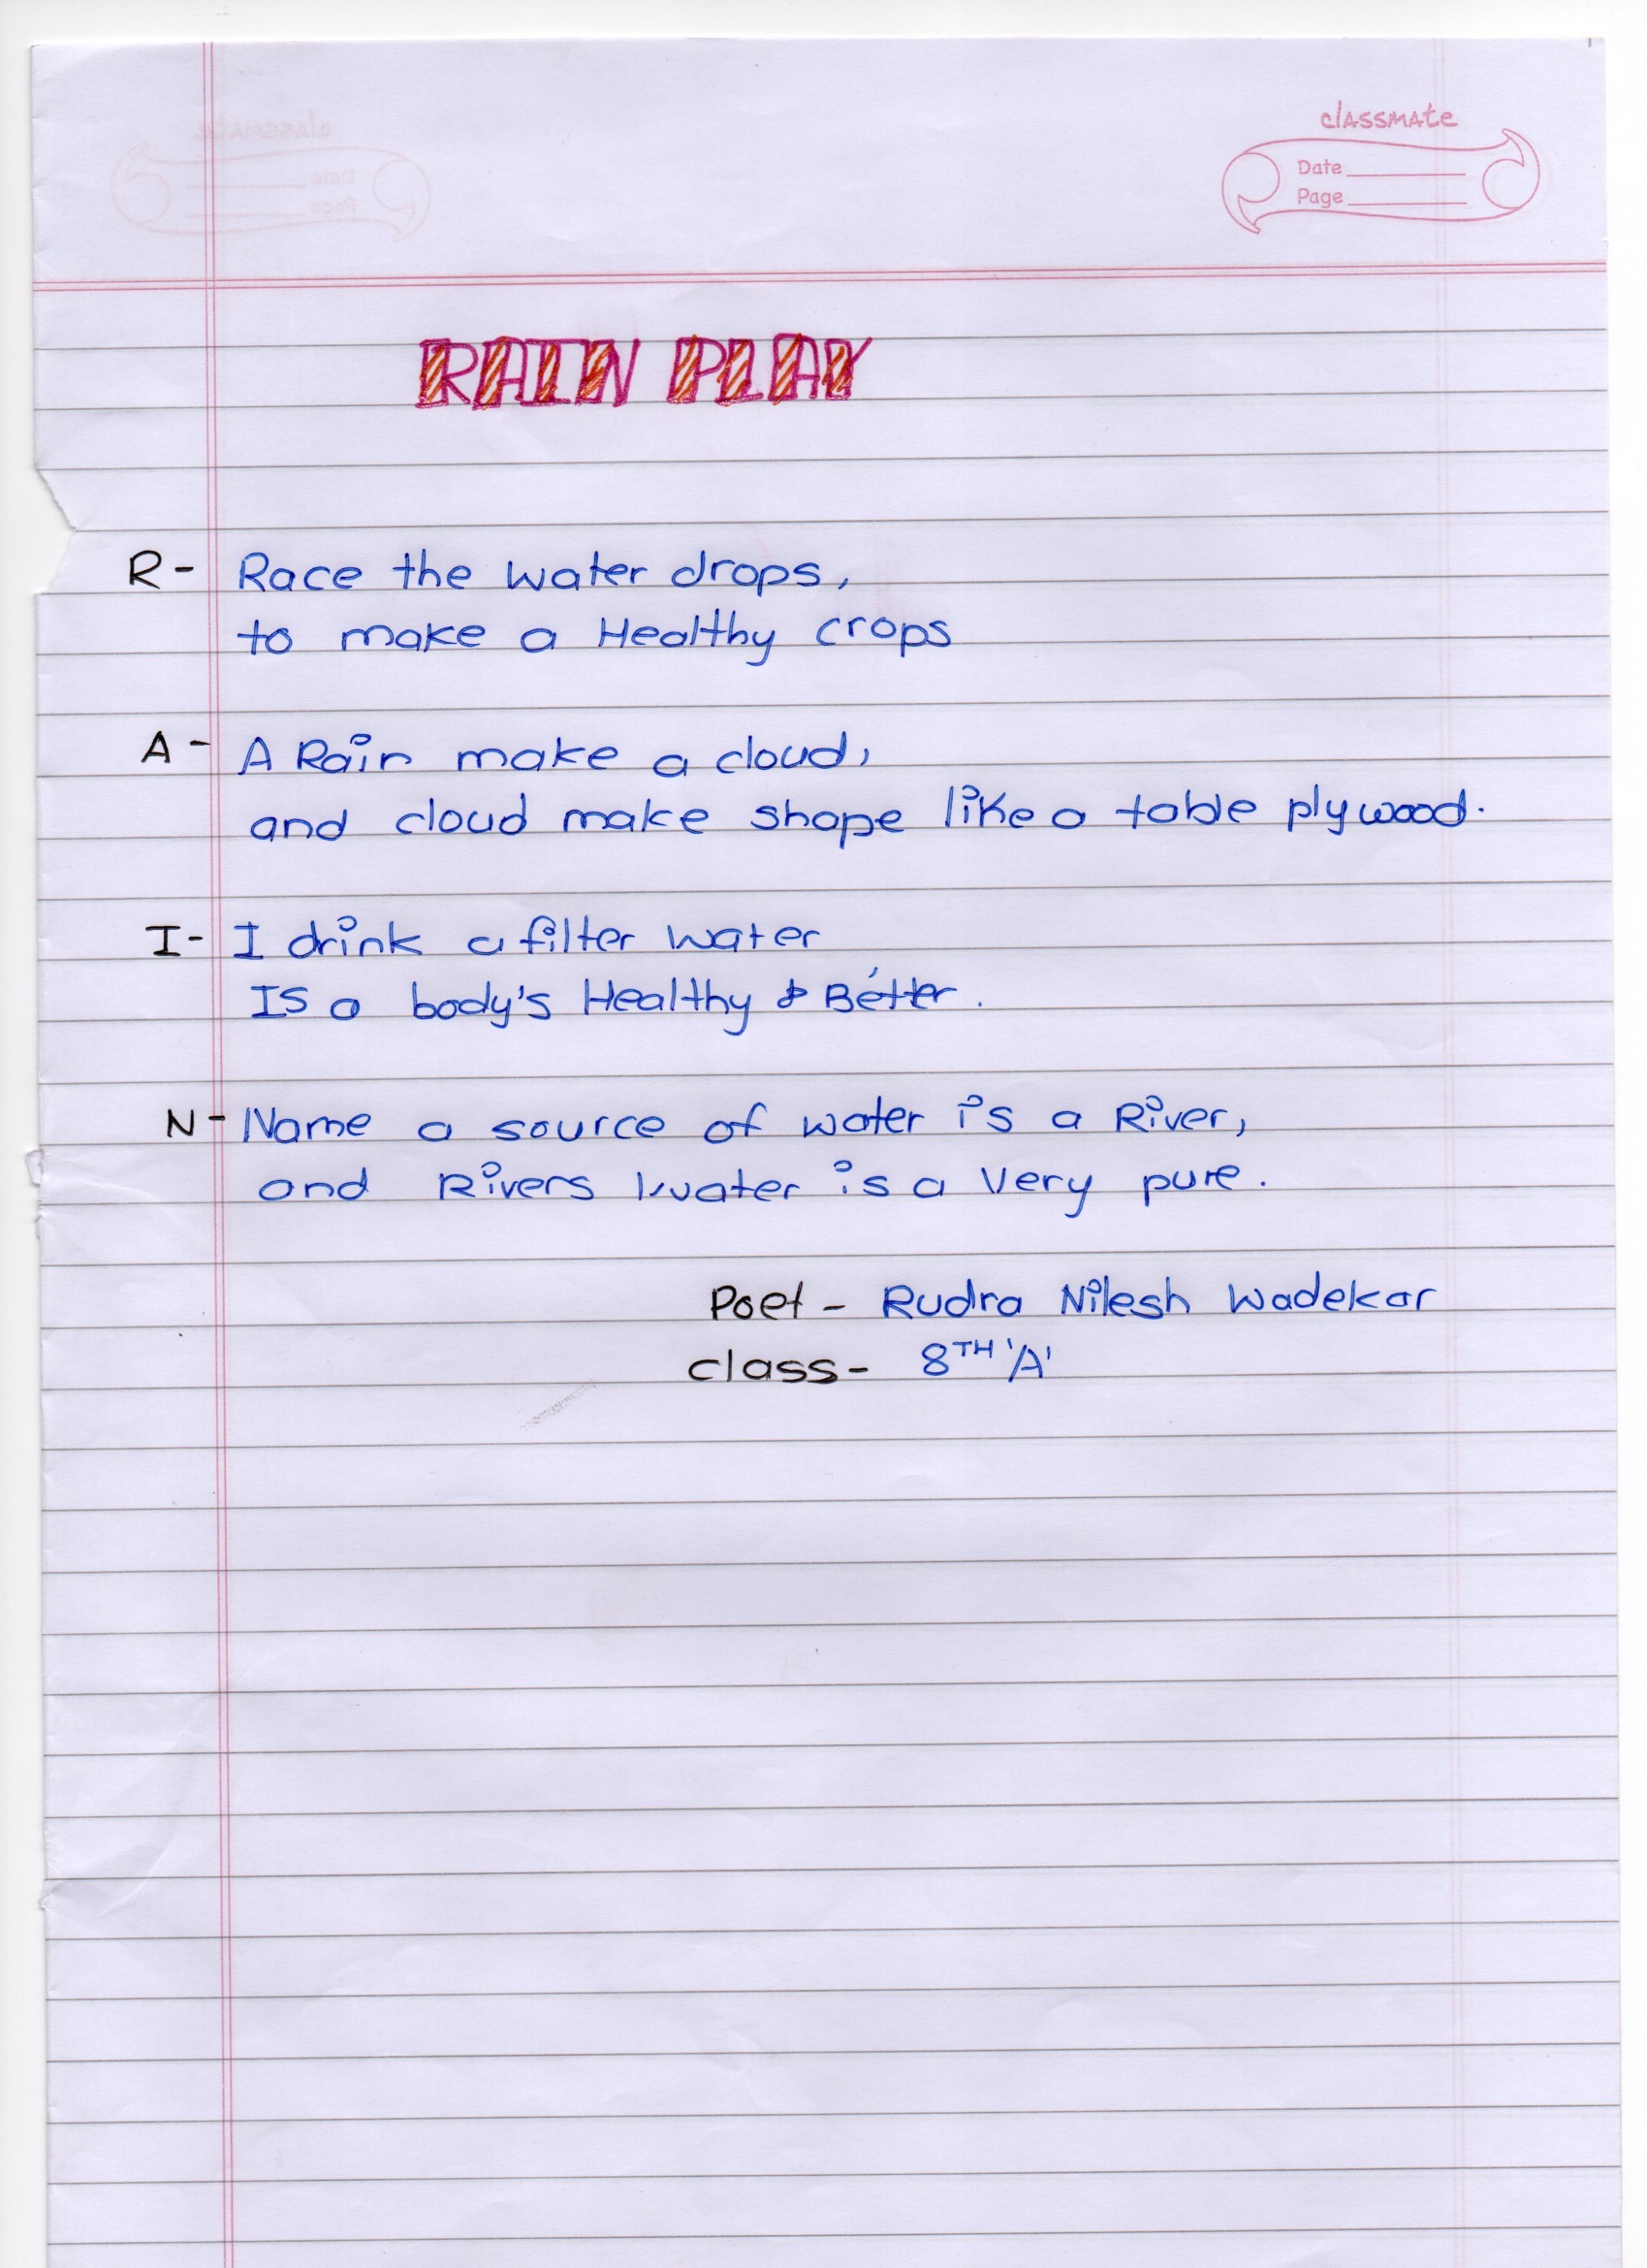 classmate
Date
Page
RAIN PLAY
R- Race the water drops,
to make a Healthy crops
A- A Rain make a cloud,
and cloud make shape like a table plywood.
I- I drink a filter water
Is a body's Healthy & Better.
N- Name a source of water is a River,
and Rivers water is a Very pure.
Poet - Rudra Nilesh Wadekar
class- 8TH 'A'